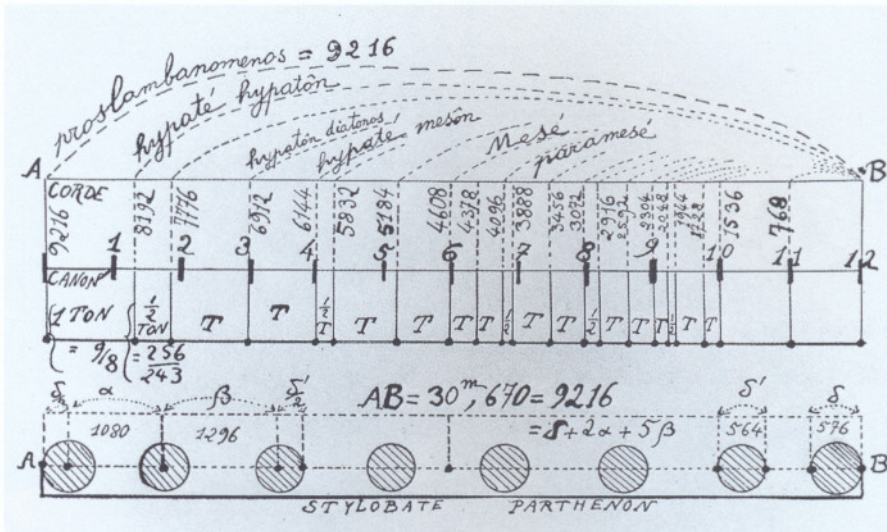 proslambanomenos = 9216
hypaté hypatôn
hypatôn diatonos
hypaté mesôn
Mesé
paramesé
A B
CORDE
9216 8192 7776 6912 6144 5832 5184 4608 4378 4096 3888 3456 3072 2916 2592 2304 2048 1944 1728 1536 768
1 2 3 4 5 6 7 8 9 10 11 12
CANON
1 TON ½ TON T T ½ T T T T T ½ T T ½ T T T ½ T T
= 9/8 = 256/243
δ/2 α β δ'/2 AB = 30ᵐ,670 = 9216 δ' δ
1080 1296 = δ + 2α + 5β 564 576
A B
STYLOBATE PARTHENON